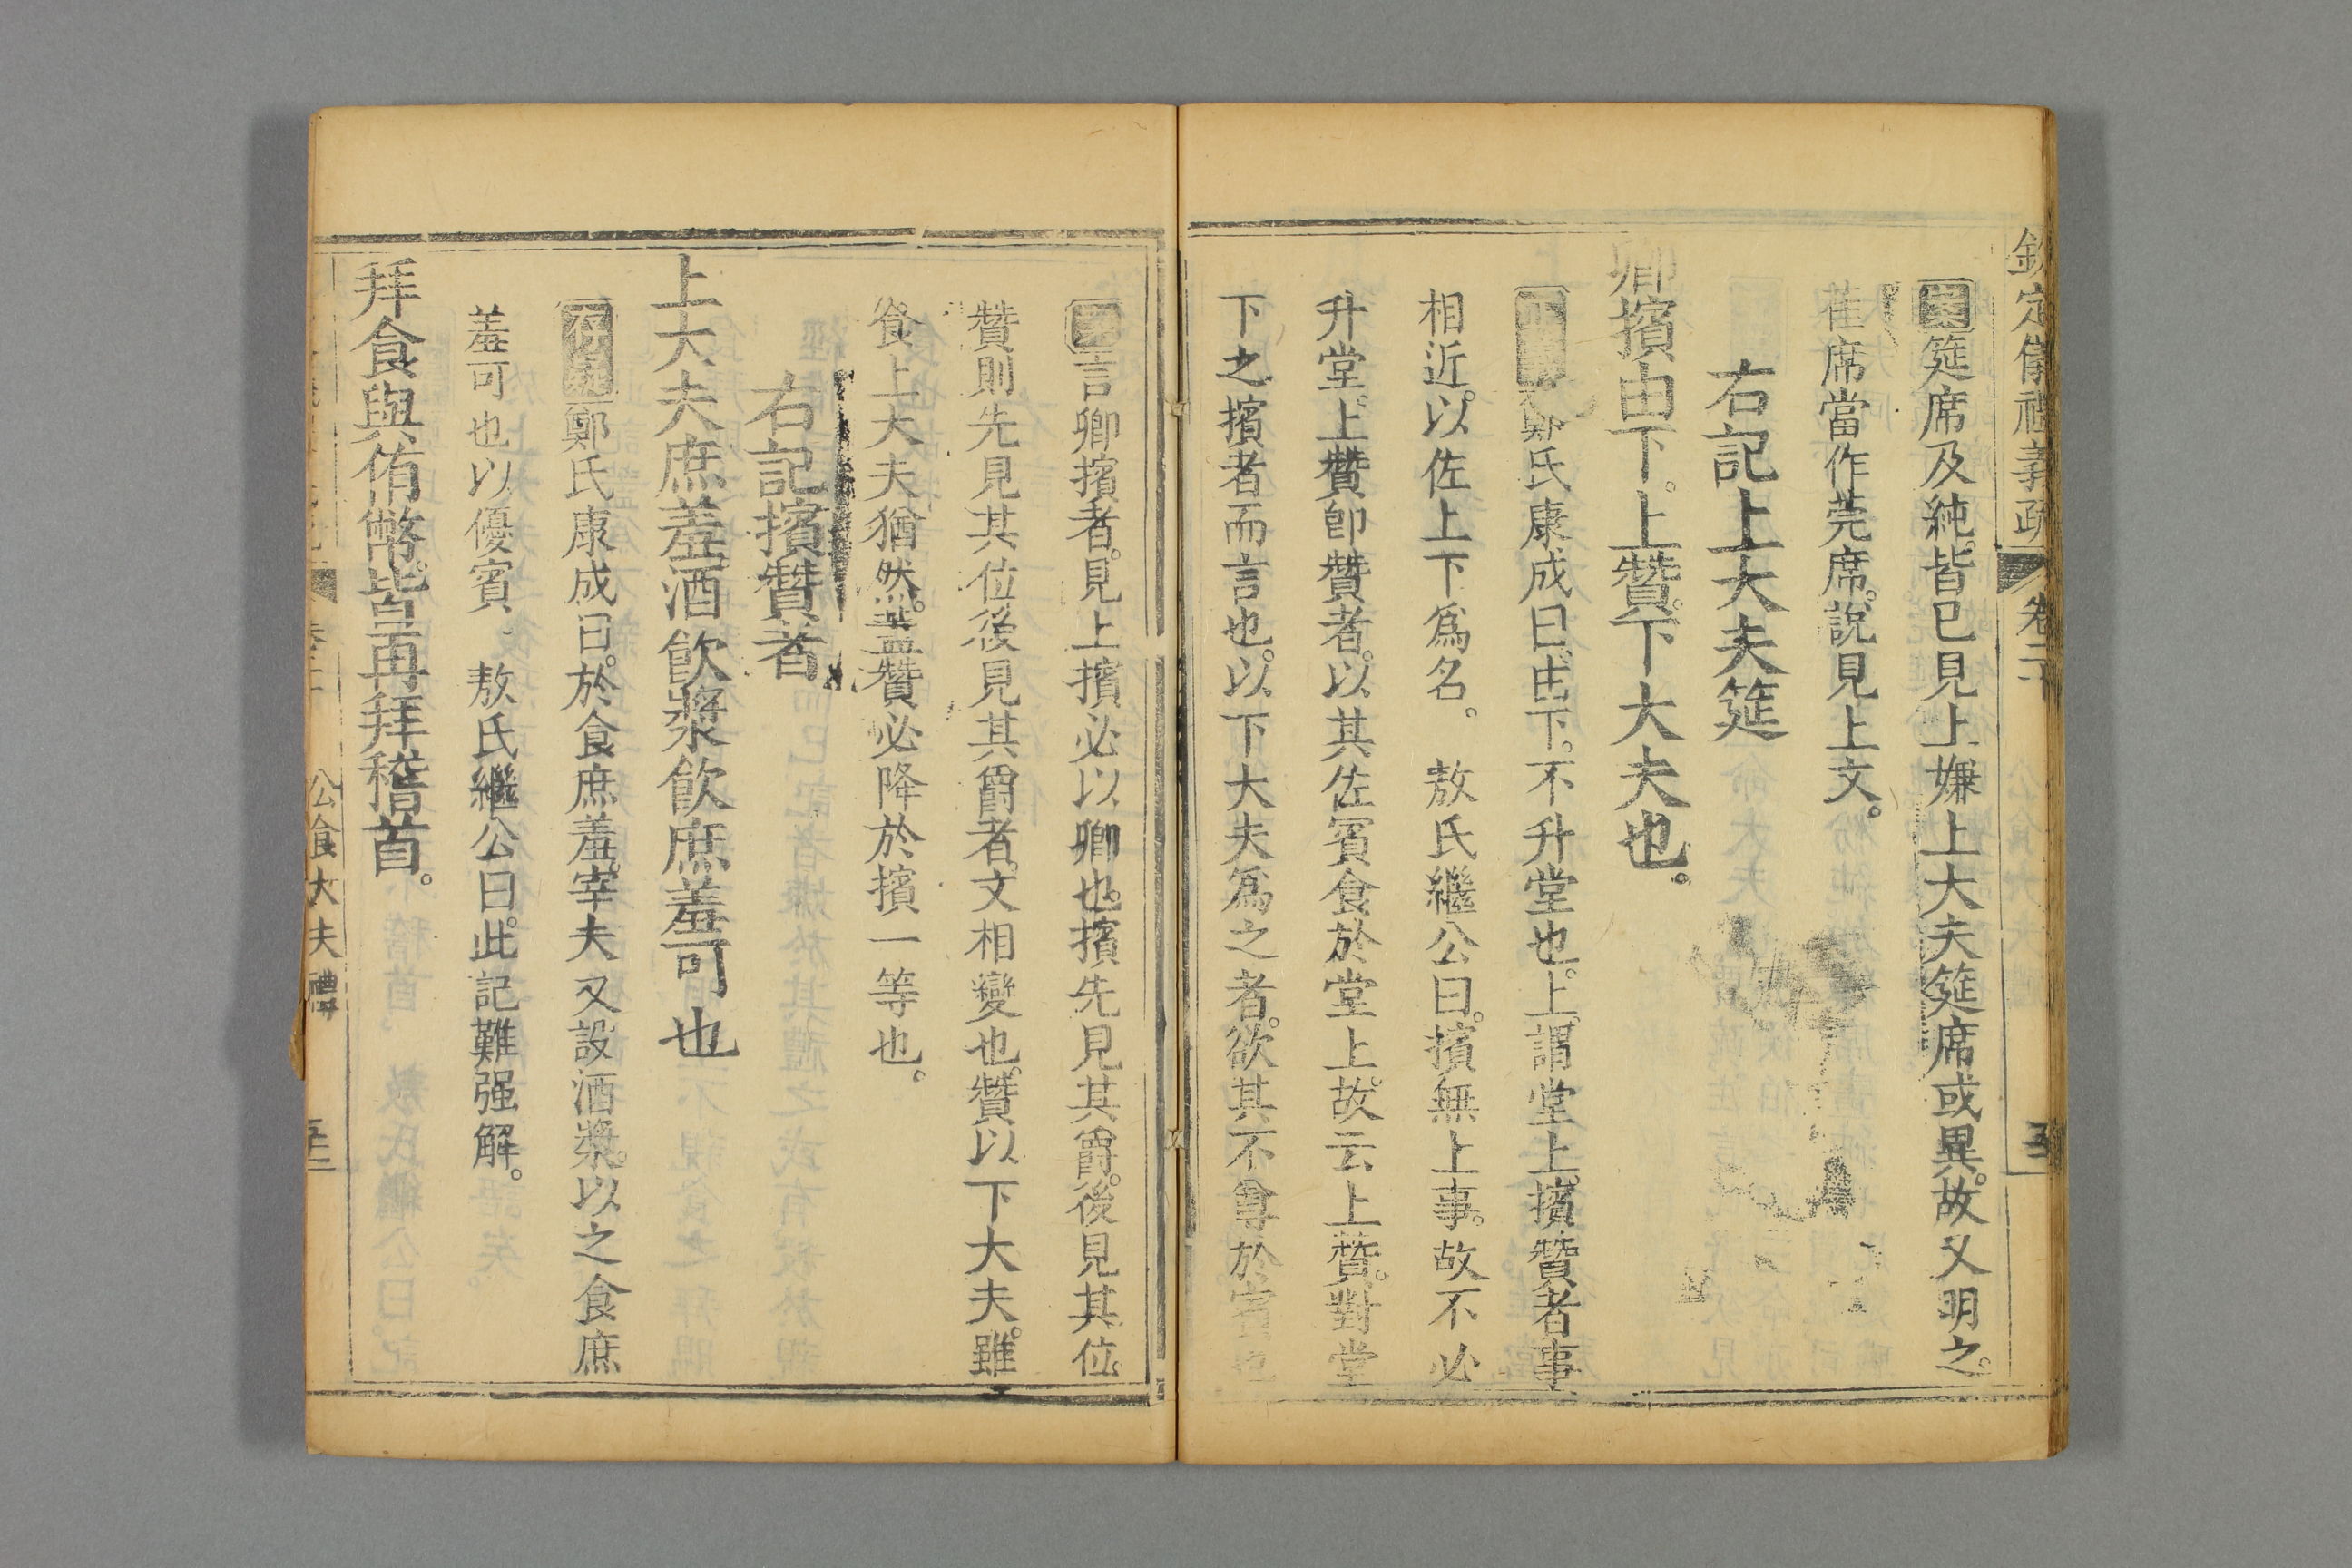 欽定儀禮義疏 卷二十
案筵席及純。皆已見上。嫌上大夫筵席或異。故又明之。
萑席當作莞席。說見上文。
右記上大夫筵
卿擯由下。上贊。下大夫也。
正義鄭氏康成曰。由下。不升堂也。上。謂堂上。擯贊者事
相近。以佐上下爲名。 敖氏繼公曰。擯無上事。故不必
升堂。上贊卽贊者。以其佐賓食於堂上。故云上贊。對堂
下之擯者而言也。以下大夫爲之者。欲其不尊於賓也
案言卿擯者。見上擯必以卿也。擯先見其爵。後見其位。
贊則先見其位。後見其爵者。文相變也。贊以下大夫。雖
食上大夫猶然。蓋贊必降於擯一等也。
右記擯贊者
上大夫庶羞酒飲漿飲庶羞可也
存疑鄭氏康成曰。於食庶羞。宰夫又設酒漿。以之食庶
羞可也。以優賓。 敖氏繼公曰。此記難强解。
拜食與侑幣。皆再拜稽首。
公食大夫禮